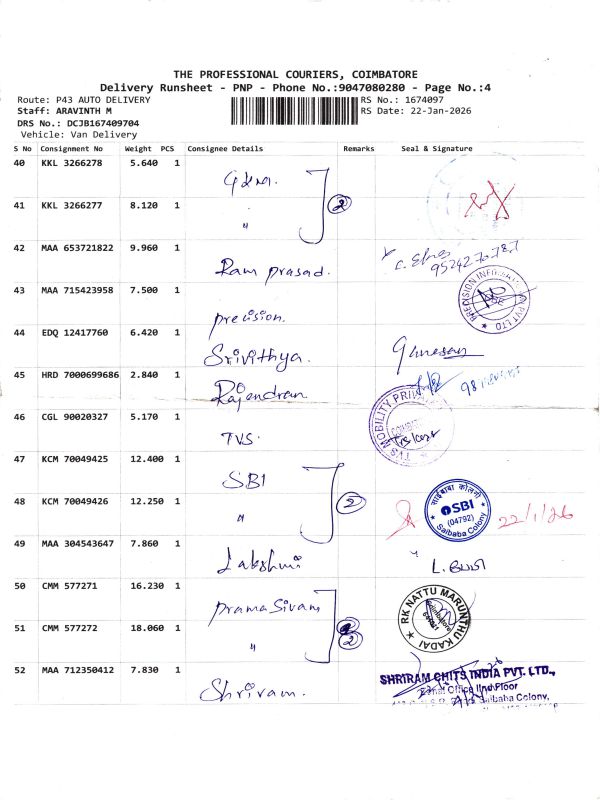 THE PROFESSIONAL COURIERS, COIMBATORE
Delivery Runsheet - PNP - Phone No.:9047080280 - Page No.:4
Route: P43 AUTO DELIVERY RS No.: 1674097
Staff: ARAVINTH M RS Date: 22-Jan-2026
DRS No.: DCJB167409704
Vehicle: Van Delivery
S No Consignment No Weight PCS Consignee Details Remarks Seal & Signature
40 KKL 3266278 5.640 1
41 KKL 3266277 8.120 1 " 2
42 MAA 653721822 9.960 1 Ram prasad.
43 MAA 715423958 7.500 1 precision. PRECISION PVT LTD
44 EDQ 12417760 6.420 1 Srivithya. Ganesan
45 HRD 7000699686 2.840 1 Rajendran
46 CGL 90020327 5.170 1 TVS. TVS MOBILITY
47 KCM 70049425 12.400 1 SBI
48 KCM 70049426 12.250 1 " 2 साईबाबा कॉलनी SBI (04792) Saibaba Colony 22/1/26
49 MAA 304543647 7.860 1 Lakshmi
50 CMM 577271 16.230 1 prama Sivam RK NATTU MARUNTHU KADAI
51 CMM 577272 18.060 1 " 2
52 MAA 712350412 7.830 1 Shriram. SHRIRAM CHITS INDIA PVT. LTD.,
Zonal Office IInd Floor
Saibaba Colony,